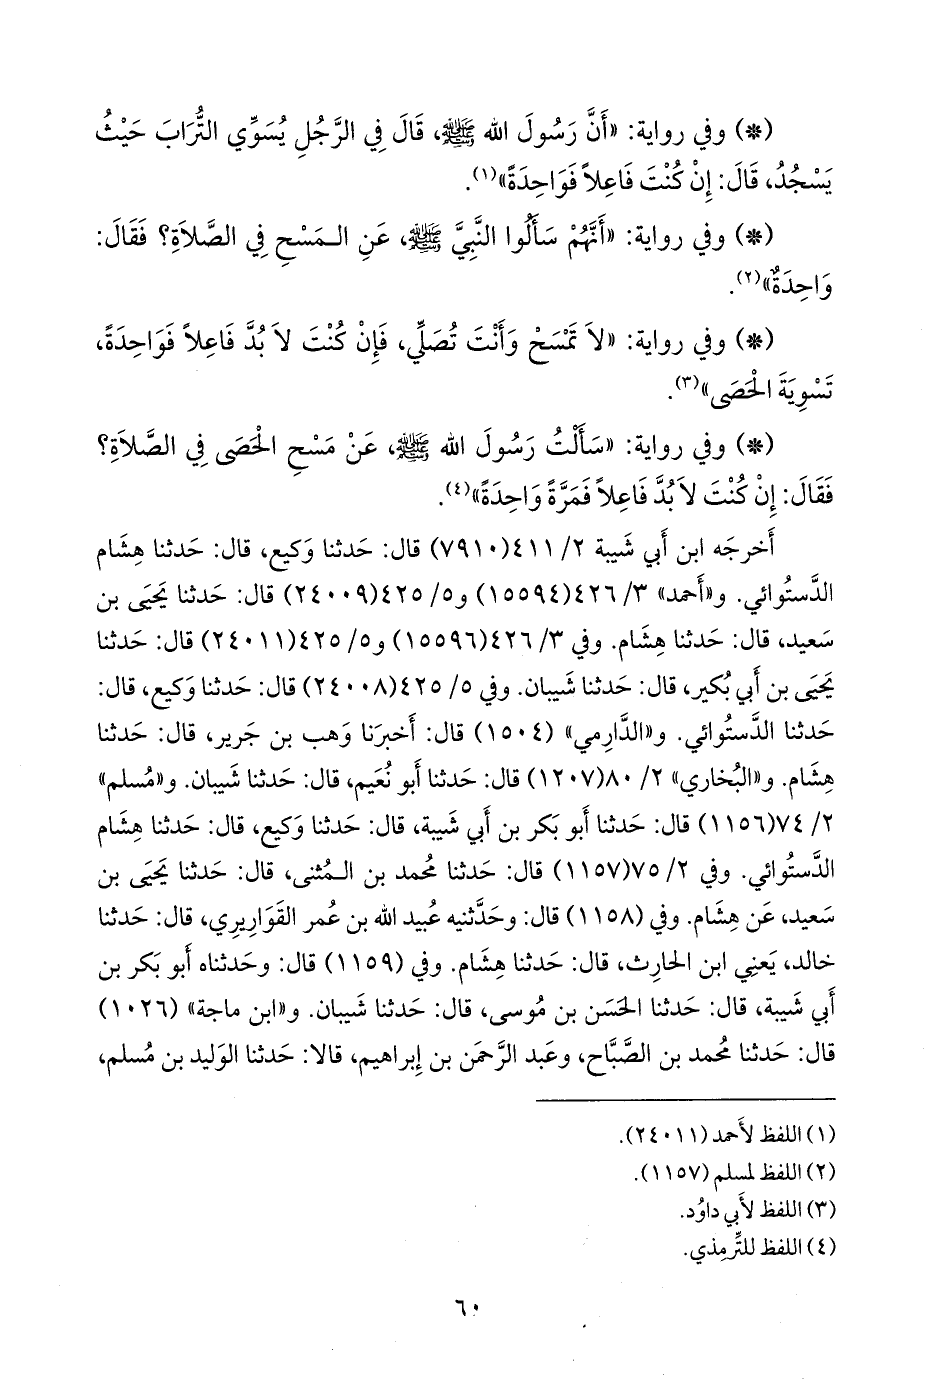 (*) وفي رواية: «أَنَّ رَسُولَ الله ﷺ، قَالَ فِي الرَّجُلِ يُسَوِّي التُّرَابَ حَيْثُ
يَسْجُدُ، قَالَ: إِنْ كُنْتَ فَاعِلاً فَوَاحِدَةً»(١).
(*) وفي رواية: «أَنَّهُمْ سَأَلُوا النَّبِيَّ ﷺ، عَنِ الـمَسْحِ فِي الصَّلاَةِ؟ فَقَالَ:
وَاحِدَةٌ»(٢).
(*) وفي رواية: «لاَ تَمْسَحْ وَأَنْتَ تُصَلِّي، فَإِنْ كُنْتَ لاَ بُدَّ فَاعِلاً فَوَاحِدَةً،
تَسْوِيَةَ الْحَصَى»(٣).
(*) وفي رواية: «سَأَلْتُ رَسُولَ الله ﷺ، عَنْ مَسْحِ الْحَصَى فِي الصَّلاَةِ؟
فَقَالَ: إِنْ كُنْتَ لاَ بُدَّ فَاعِلاً فَمَرَّةً وَاحِدَةً»(٤).
أَخرجَه ابن أَبي شَيبة ٢/ ٤١١(٧٩١٠) قال: حَدثنا وَكيع، قال: حَدثنا هِشَام
الدَّستُوائي. و«أَحمد» ٣/ ٤٢٦(١٥٥٩٤) و٥/ ٤٢٥(٢٤٠٠٩) قال: حَدثنا يَحيَى بن
سَعيد، قال: حَدثنا هِشَام. وفي ٣/ ٤٢٦(١٥٥٩٦) و٥/ ٤٢٥(٢٤٠١١) قال: حَدثنا
يَحيَى بن أَبي بُكير، قال: حَدثنا شَيبان. وفي ٥/ ٤٢٥(٢٤٠٠٨) قال: حَدثنا وَكيع، قال:
حَدثنا الدَّستُوائي. و«الدَّارِمي» (١٥٠٤) قال: أَخبرَنا وَهب بن جَرير، قال: حَدثنا
هِشَام. و«البُخاري» ٢/ ٨٠(١٢٠٧) قال: حَدثنا أَبو نُعَيم، قال: حَدثنا شَيبان. و«مُسلم»
٢/ ٧٤(١١٥٦) قال: حَدثنا أَبو بَكر بن أَبي شَيبة، قال: حَدثنا وَكيع، قال: حَدثنا هِشَام
الدَّستُوائي. وفي ٢/ ٧٥(١١٥٧) قال: حَدثنا مُحمد بن الـمُثنى، قال: حَدثنا يَحيَى بن
سَعيد، عَن هِشَام. وفي (١١٥٨) قال: وحَدَّثنيه عُبيد الله بن عُمر القَوَارِيري، قال: حَدثنا
خالد، يَعني ابن الحارث، قال: حَدثنا هِشَام. وفي (١١٥٩) قال: وحَدثناه أَبو بَكر بن
أَبي شَيبة، قال: حَدثنا الحَسَن بن مُوسى، قال: حَدثنا شَيبان. و«ابن ماجة» (١٠٢٦)
قال: حَدثنا مُحمد بن الصَّبَّاح، وعَبد الرَّحمَن بن إِبراهيم، قالا: حَدثنا الوَليد بن مُسلم،
(١) اللفظ لأَحمد (٢٤٠١١).
(٢) اللفظ لمسلم (١١٥٧).
(٣) اللفظ لأَبي داوُد.
(٤) اللفظ للتِّرمِذي.
٦٠